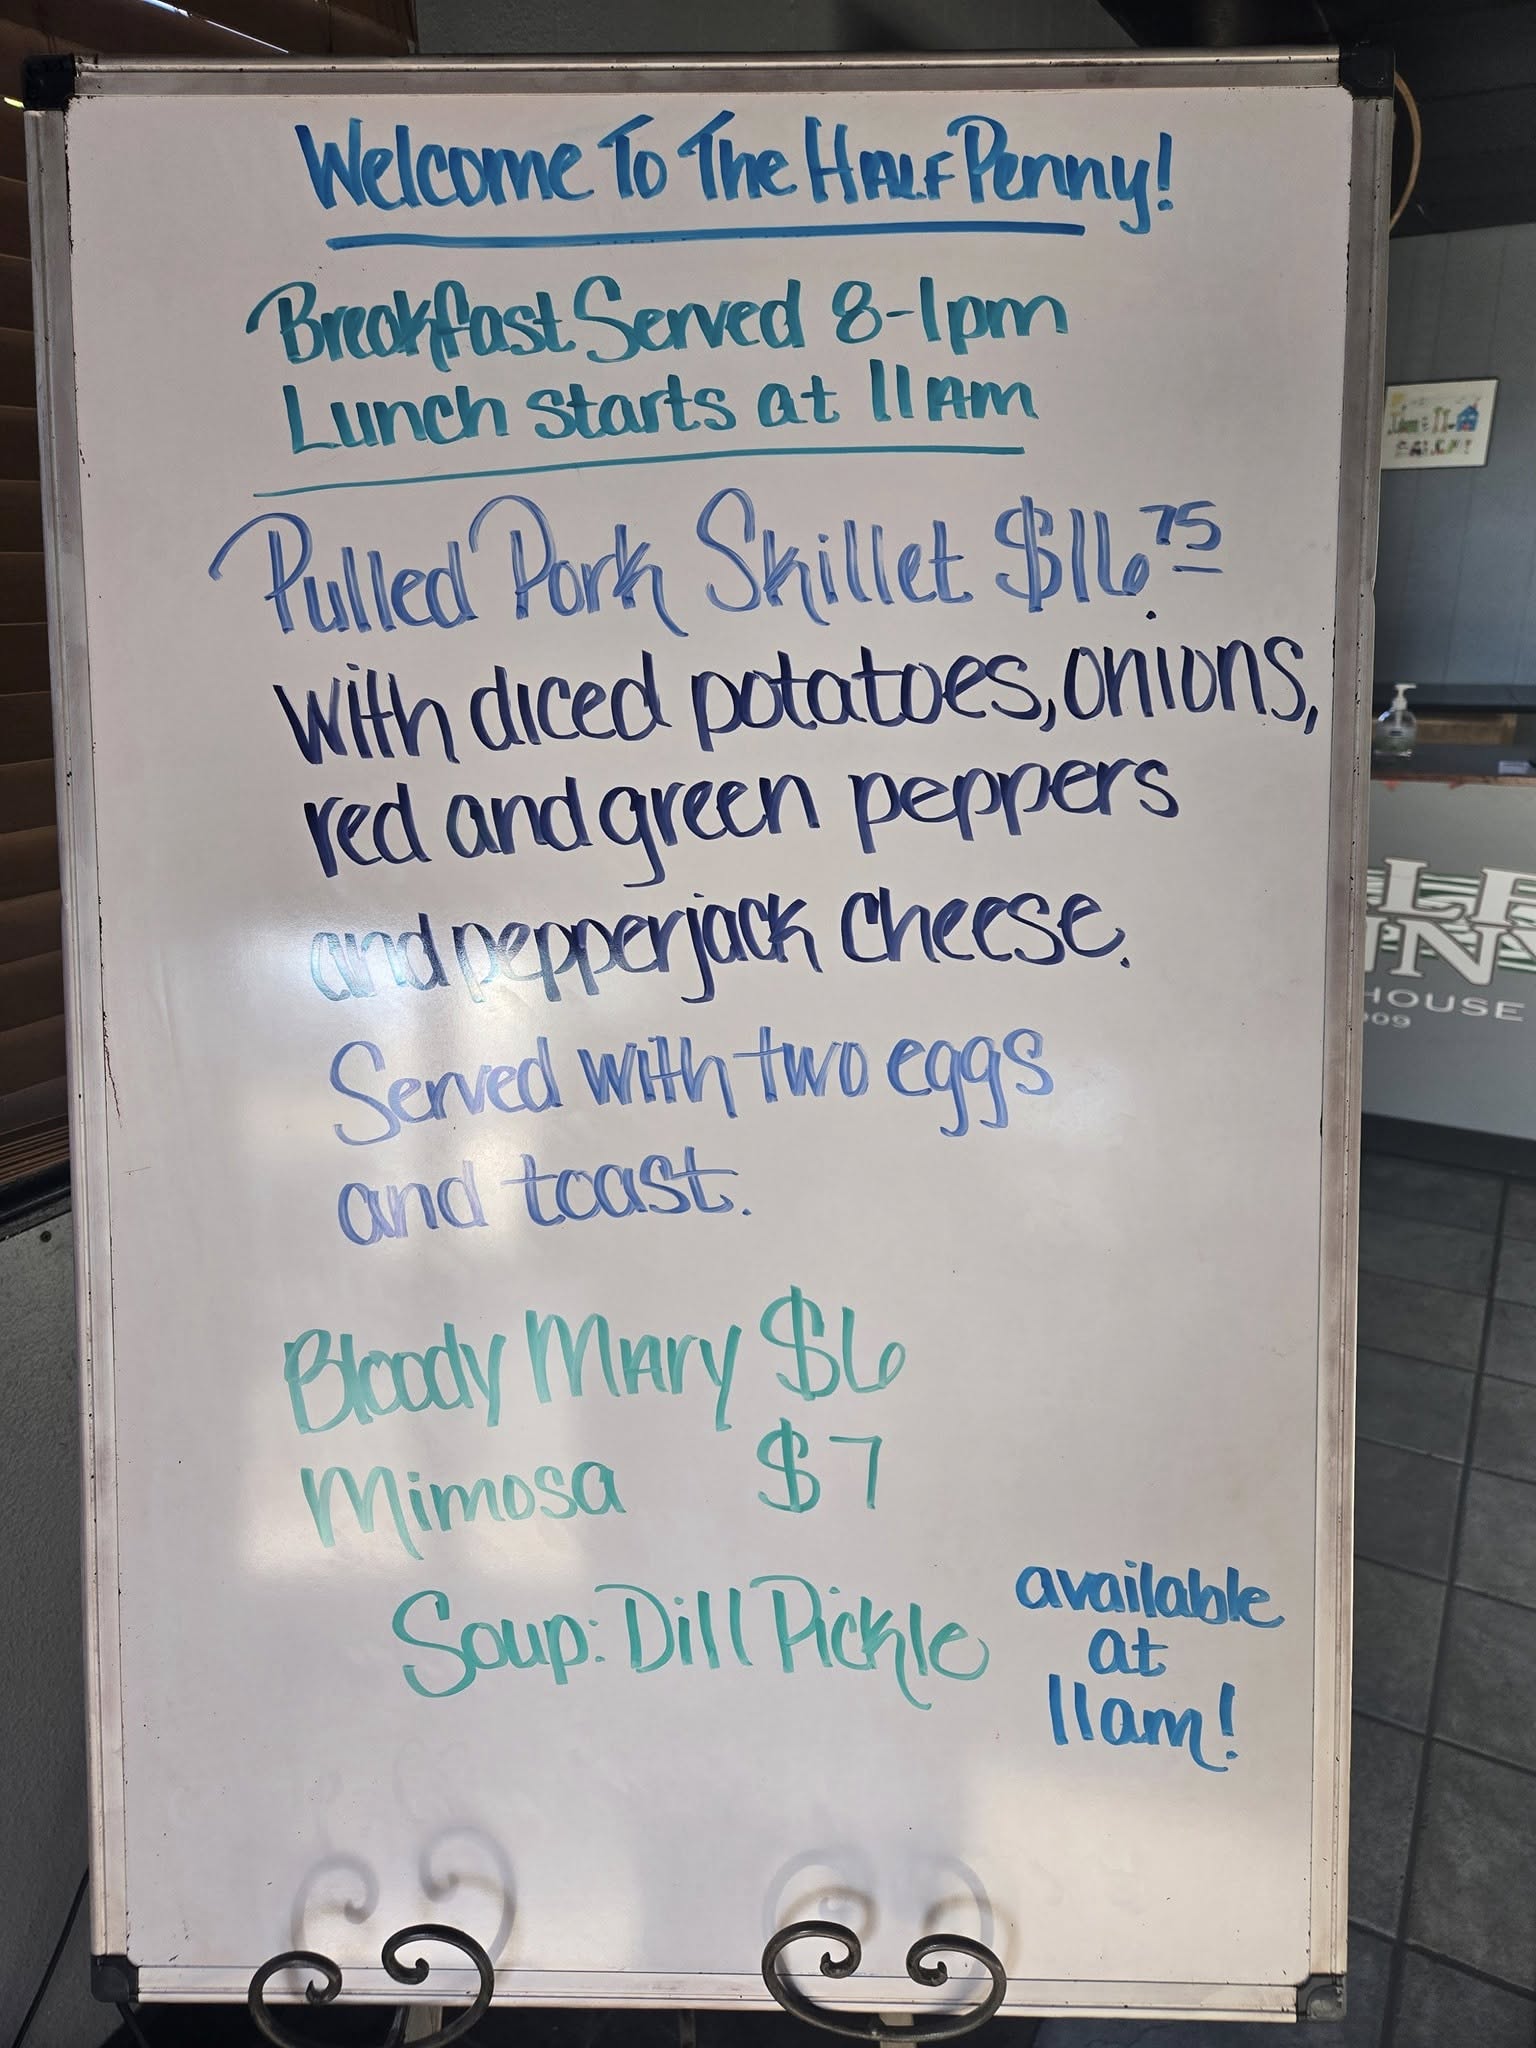 Welcome To The HALF Penny!
Breakfast Served 8-1pm
Lunch starts at 11AM
Pulled Pork Skillet $16.75
with diced potatoes, onions,
red and green peppers
and pepperjack cheese.
Served with two eggs
and toast.
Bloody MARY $6
Mimosa $7
Soup: Dill Pickle
available
at
11am!
LF
NNY
HOUSE